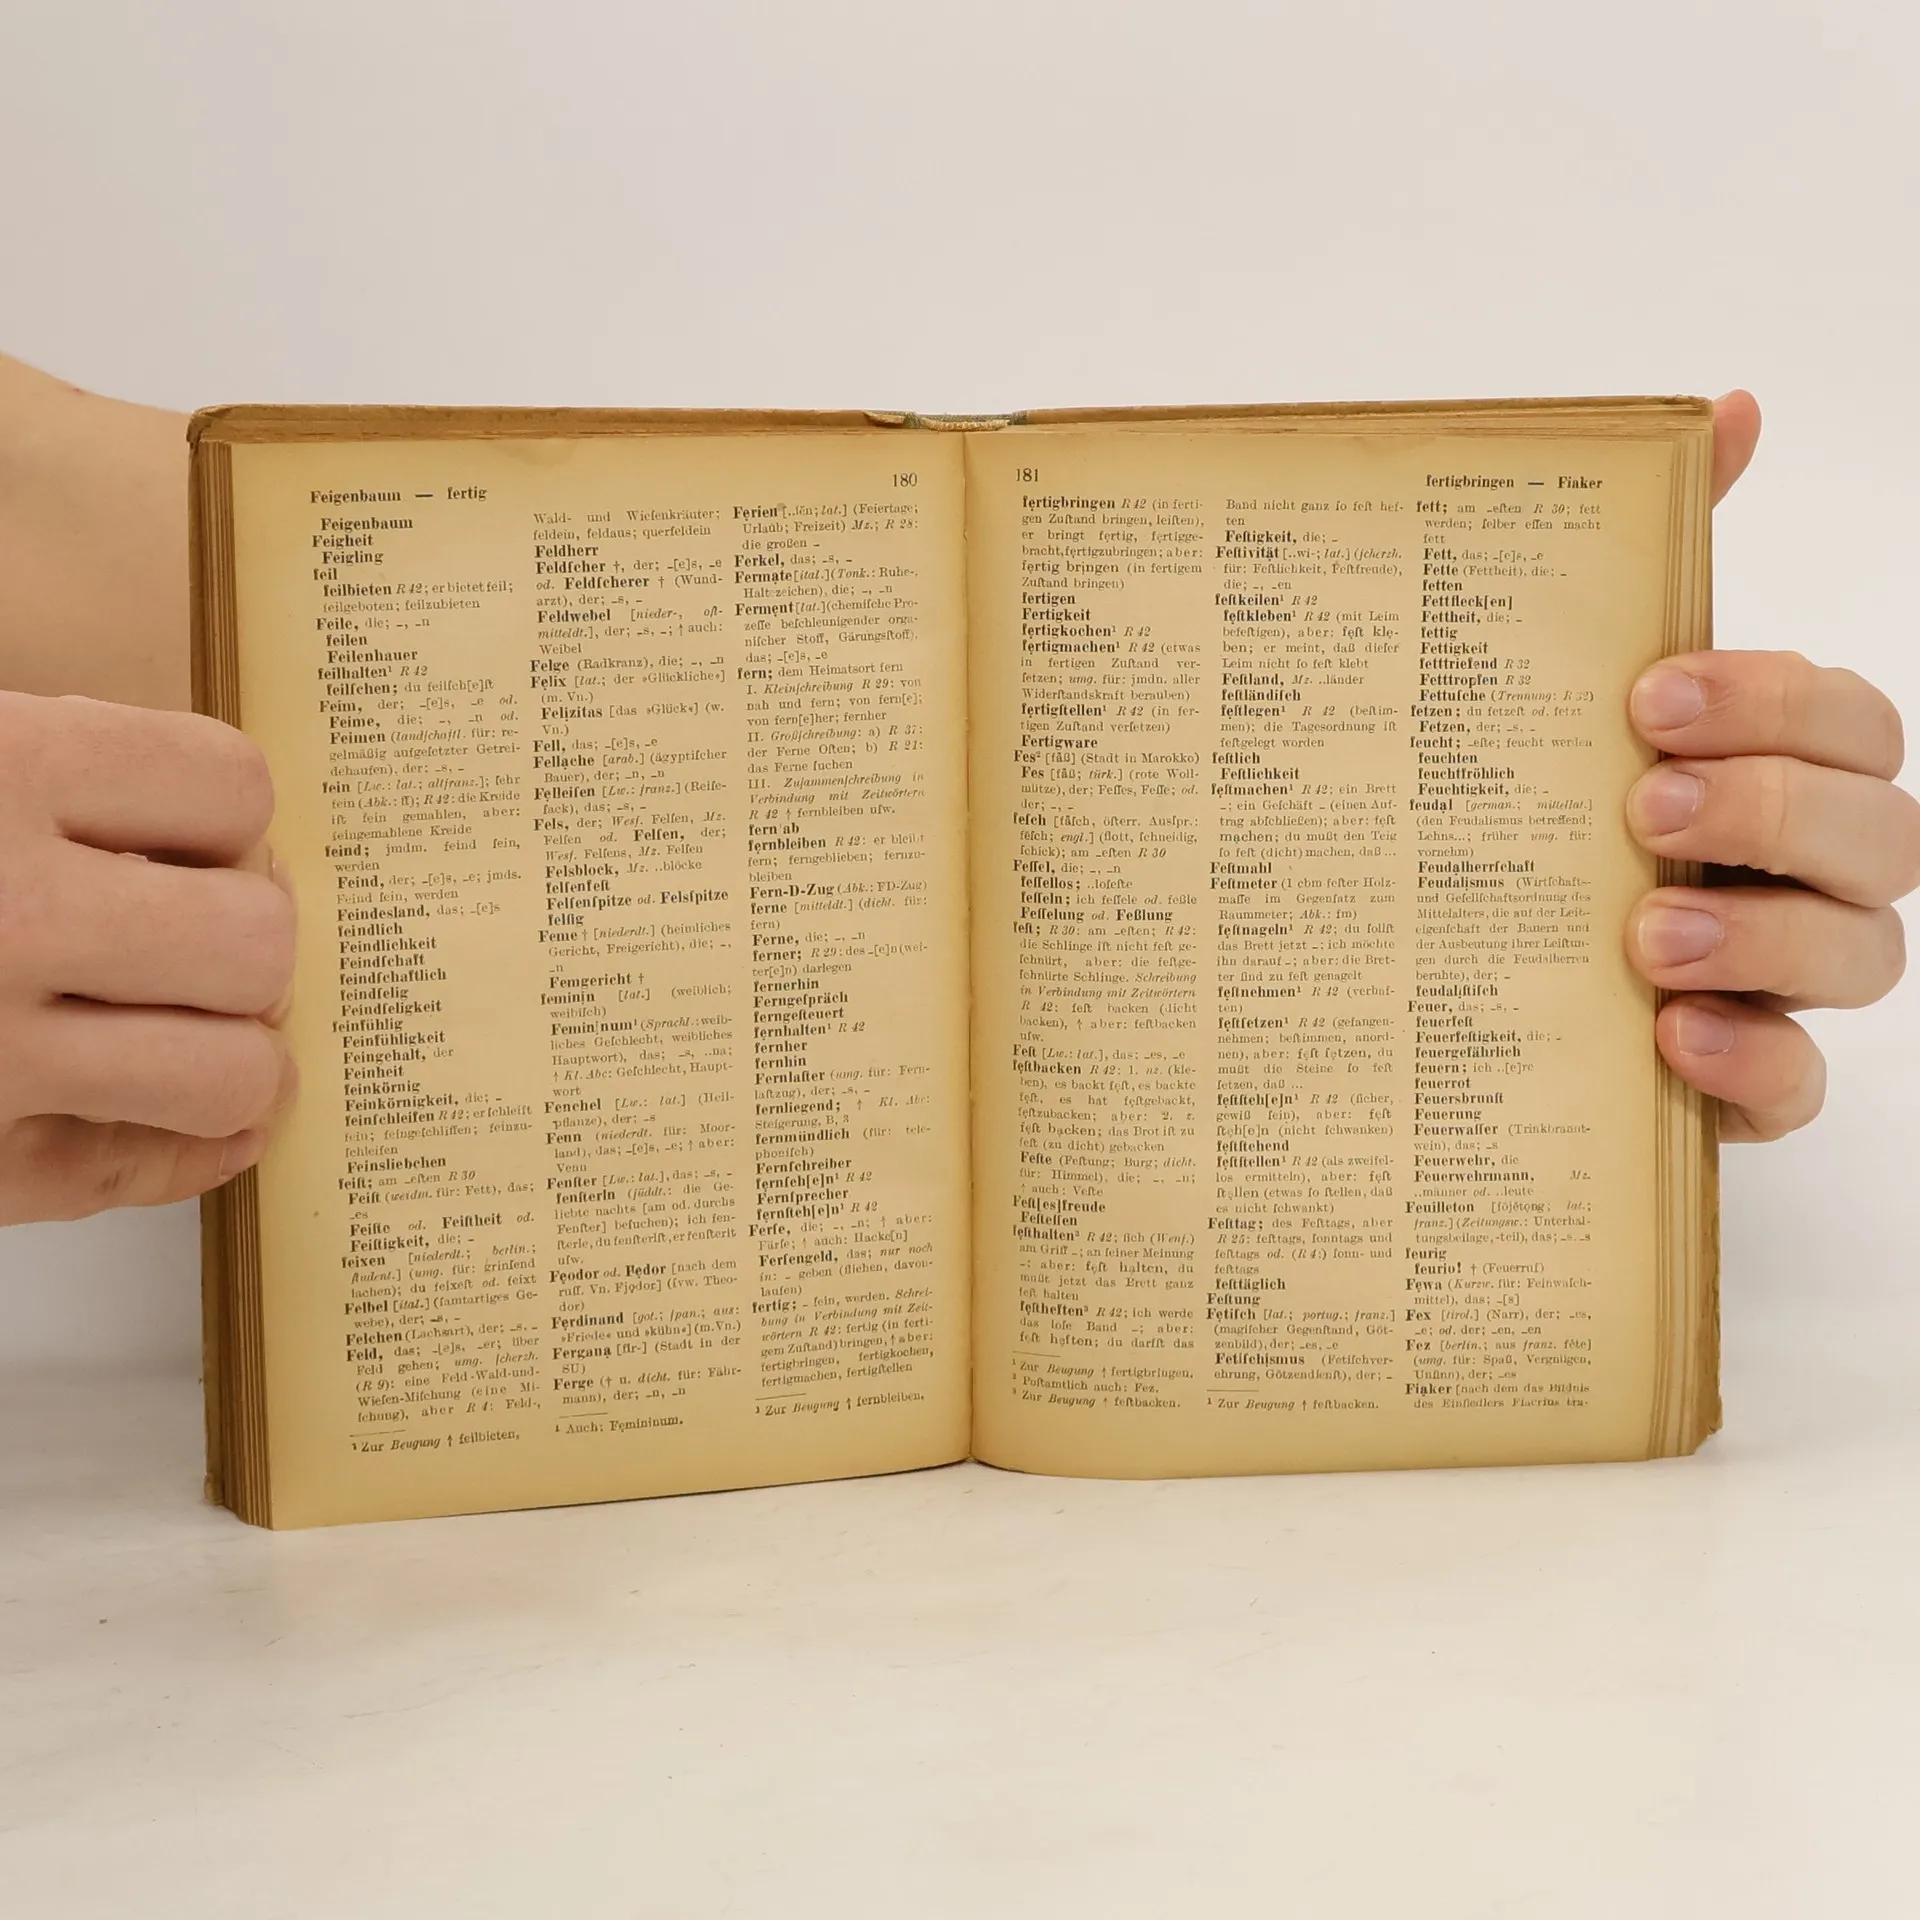 Feigenbaum — fertig
180
Feigenbaum
Feigheit
Feigling
feil
feilbieten R 42; er bietet feil;
feilgeboten; feilzubieten
Feile, die; _, _n
feilen
Feilenhauer
feilhalten¹ R 42
feilſchen; du feilſch[e]ſt
Feim, der; _[e]s, _e od.
Feime, die; _, _n od.
Feimen (landſchaftl. für: re-
gelmäßig aufgeſetzter Getrei-
dehaufen), der; _s, _
fein [Lw.: lat.; altfranz.]; ſehr
fein (Abk.: ff); R 42: die Kreide
iſt fein gemahlen, aber:
feingemahlene Kreide
feind; jmdm. feind ſein,
werden
Feind, der; _[e]s, _e; jmds.
Feind ſein, werden
Feindesland, das; _[e]s
feindlich
Feindlichkeit
Feindſchaft
feindſchaftlich
feindſelig
Feindſeligkeit
feinfühlig
Feinfühligkeit
Feingehalt, der
Feinheit
feinkörnig
Feinkörnigkeit, die; _
feinſchleifen R 42; er ſchleift
fein; feingeſchliffen; feinzu-
ſchleifen
Feinsliebchen
feiſt; am _eſten R 30
Feiſt (weidm. für: Fett), das;
_es
Feiſte od. Feiſtheit od.
Feiſtigkeit, die; _
feixen [niederdt.; berlin.;
ſtudent.] (umg. für: grinſend
lachen); du feixeſt od. feixt
Felbel [ital.] (ſamtartiges Ge-
webe), der; _s, _
Felchen (Lachsart), der; _s, _
Feld, das; _[e]s, _er; über
Feld gehen; umg. ſcherzh.
(R 9): eine Feld-Wald-und-
Wieſen-Miſchung (eine Mi-
ſchung), aber R 4: Feld-,
¹ Zur Beugung ↑ feilbieten.
Wald- und Wieſenkräuter;
feldein, feldaus; querfeldein
Feldherr
Feldſcher †, der; _[e]s, _e
od. Feldſcherer † (Wund-
arzt), der; _s, _
Feldwebel [nieder-, oſt-
mitteldt.], der; _s, _; ↑ auch:
Weibel
Felge (Radkranz), die; _, _n
Felix [lat.; der »Glückliche«]
(m. Vn.)
Felizitas [das »Glück«] (w.
Vn.)
Fell, das; _[e]s, _e
Fellache [arab.] (ägyptiſcher
Bauer), der; _n, _n
Felleiſen [Lw.: franz.] (Reiſe-
ſack), das; _s, _
Fels, der; Wesf. Felſen, Mz.
Felſen od. Felſen, der;
Wesf. Felſens, Mz. Felſen
Felsblock, Mz. ..blöcke
felſenfeſt
Felſenſpitze od. Felsſpitze
felſig
Feme † [niederdt.] (heimliches
Gericht, Freigericht), die; _,
_n
Femgericht †
feminin [lat.] (weiblich;
weibiſch)
Femininum¹ (Sprachl.: weib-
liches Geſchlecht, weibliches
Hauptwort), das; _s, ..na;
↑ Kl. Abc: Geſchlecht, Haupt-
wort
Fenchel [Lw.: lat.] (Heil-
pflanze), der; _s
Fenn (niederdt. für: Moor-
land), das; _[e]s, _e; ↑ aber:
Venn
Fenſter [Lw.: lat.], das; _s, _
fenſterln (ſüddt.: die Ge-
liebte nachts [am od. durchs
Fenſter] beſuchen); ich fen-
ſterle, du fenſterlſt, er fenſterlt
uſw.
Feodor od. Fedor [nach dem
ruſſ. Vn. Fjodor] (ſvw. Theo-
dor)
Ferdinand [got.; ſpan.; aus:
»Friede« und »kühn«] (m.Vn.)
Fergana [fir-] (Stadt in der
SU)
Ferge († u. dicht. für: Fähr-
mann), der; _n, _n
¹ Auch: Femininum.
Ferien [..iën; lat.] (Feiertage;
Urlaub; Freizeit) Mz.; R 28:
die großen _
Ferkel, das; _s, _
Fermate [ital.] (Tonk.: Ruhe-,
Haltezeichen), die; _, _n
Ferment [lat.] (chemiſche Pro-
zeſſe beſchleunigender orga-
niſcher Stoff, Gärungsſtoff),
das; _[e]s, _e
fern; dem Heimatsort fern
I. Kleinſchreibung R 29: von
nah und fern; von fern[e];
von fern[e]her; fernher
II. Großſchreibung: a) R 37:
der Ferne Oſten; b) R 21:
das Ferne ſuchen
III. Zuſammenſchreibung in
Verbindung mit Zeitwörtern
R 42 ↑ fernbleiben uſw.
fern ab
fernbleiben R 42: er bleibt
fern; ferngeblieben; fernzu-
bleiben
Fern-D-Zug (Abk.: FD-Zug)
ferne [mitteldt.] (dicht. für:
fern)
Ferne, die; _, _n
ferner; R 29: des _[e]n (wei-
ter[e]n) darlegen
fernerhin
Ferngeſpräch
ferngeſteuert
fernhalten¹ R 42
fernher
fernhin
Fernlaſter (umg. für: Fern-
laſtzug), der; _s, _
fernliegend; ↑ Kl. Abc:
Steigerung, B, 3
fernmündlich (für: tele-
phoniſch)
Fernſchreiber
fernſeh[e]n¹ R 42
Fernſprecher
fernſteh[e]n¹ R 42
Ferſe, die; _, _n; ↑ aber:
Färſe; ↑ auch: Hacke[n]
Ferſengeld, das; nur noch
in: _ geben (fliehen, davon-
laufen)
fertig; _ ſein, werden. Schrei-
bung in Verbindung mit Zeit-
wörtern R 42: fertig (in ferti-
gem Zuſtand) bringen, ↑ aber:
fertigbringen, fertigkochen,
fertigmachen, fertigſtellen
¹ Zur Beugung ↑ fernbleiben.
181
fertigbringen — Fiaker
fertigbringen R 42 (in ferti-
gen Zuſtand bringen, leiſten),
er bringt fertig, fertigge-
bracht, fertigzubringen; aber:
fertig bringen (in fertigem
Zuſtand bringen)
fertigen
Fertigkeit
fertigkochen¹ R 42
fertigmachen¹ R 42 (etwas
in fertigen Zuſtand ver-
ſetzen; umg. für: jmdn. aller
Widerſtandskraft berauben)
fertigſtellen¹ R 42 (in fer-
tigen Zuſtand verſetzen)
Fertigware
Fes² [fäß] (Stadt in Marokko)
Fes [fäß; türk.] (rote Woll-
mütze), der; Feſſes, Feſſe; od.
der; _, _
feſch [fäſch, öſterr. Ausſpr.:
féſch; engl.] (flott, ſchneidig,
ſchick); am _eſten R 30
Feſſel, die; _, _n
feſſellos; ..loſeſte
feſſeln; ich feſſele od. feßle
Feſſelung od. Feßlung
feſt; R 30: am _eſten; R 42:
die Schlinge iſt nicht feſt ge-
ſchnürt, aber: die feſtge-
ſchnürte Schlinge. Schreibung
in Verbindung mit Zeitwörtern
R 42: feſt backen (dicht
backen), ↑ aber: feſtbacken
uſw.
Feſt [Lw.: lat.], das; _es, _e
feſtbacken R 42: 1. nz. (kle-
ben), es backt feſt, es backte
feſt, es hat feſtgebackt,
feſtzubacken; aber: 2. z.
feſt backen; das Brot iſt zu
feſt (zu dicht) gebacken
Feſte (Feſtung; Burg; dicht.
für: Himmel), die; _, _n;
↑ auch: Veſte
Feſt[es]freude
Feſteſſen
feſthalten³ R 42; ſich (Wenf.)
am Griff _; an ſeiner Meinung
_; aber: feſt halten, du
mußt jetzt das Brett ganz
feſt halten
feſtheften³ R 42; ich werde
das loſe Band _; aber:
feſt heften; du darfſt das
¹ Zur Beugung ↑ fertigbringen.
² Poſtamtlich auch: Fez.
³ Zur Beugung ↑ feſtbacken.
Band nicht ganz ſo feſt hef-
ten
Feſtigkeit, die; _
Feſtivität [..wi-; lat.] (ſcherzh.
für: Feſtlichkeit, Feſtfreude),
die; _, _en
feſtkeilen¹ R 42
feſtkleben¹ R 42 (mit Leim
befeſtigen), aber: feſt kle-
ben; er meint, daß dieſer
Leim nicht ſo feſt klebt
Feſtland, Mz. ..länder
feſtländiſch
feſtlegen¹ R 42 (beſtim-
men); die Tagesordnung iſt
feſtgelegt worden
feſtlich
Feſtlichkeit
feſtmachen¹ R 42; ein Brett
_; ein Geſchäft _ (einen Auf-
trag abſchließen); aber: feſt
machen; du mußt den Teig
ſo feſt (dicht) machen, daß ...
Feſtmahl
Feſtmeter (1 cbm feſter Holz-
maſſe im Gegenſatz zum
Raummeter; Abk.: fm)
feſtnageln¹ R 42; du ſollſt
das Brett jetzt _; ich möchte
ihn darauf _; aber: die Bret-
ter ſind zu feſt genagelt
feſtnehmen¹ R 42 (verhaf-
ten)
feſtſetzen¹ R 42 (gefangen-
nehmen; beſtimmen, anord-
nen), aber: feſt ſetzen, du
mußt die Steine ſo feſt
ſetzen, daß ...
feſtſteh[e]n¹ R 42 (ſicher,
gewiß ſein), aber: feſt
ſteh[e]n (nicht ſchwanken)
feſtſtehend
feſtſtellen¹ R 42 (als zweifel-
los ermitteln), aber: feſt
ſtellen (etwas ſo ſtellen, daß
es nicht ſchwankt)
Feſttag; des Feſttags, aber
R 25: feſttags, ſonntags und
feſttags od. (R 4:) ſonn- und
feſttags
feſttäglich
Feſtung
Fetiſch [lat.; portug.; franz.]
(magiſcher Gegenſtand, Göt-
zenbild), der; _es, _e
Fetiſchismus (Fetiſchver-
ehrung, Götzendienſt), der; _
¹ Zur Beugung ↑ feſtbacken.
fett; am _eſten R 30; fett
werden; ſelber eſſen macht
fett
Fett, das; _[e]s, _e
Fette (Fettheit), die; _
fetten
Fettfleck[en]
Fettheit, die; _
fettig
Fettigkeit
fetttriefend R 32
Fetttropfen R 32
Fettuſche (Trennung: R 32)
fetzen; du fetzeſt od. fetzt
Fetzen, der; _s, _
feucht; _eſte; feucht werden
feuchten
feuchtfröhlich
Feuchtigkeit, die; _
feudal [german.; mittellat.]
(den Feudalismus betreffend;
Lehns...; früher umg. für:
vornehm)
Feudalherrſchaft
Feudalismus (Wirtſchafts-
und Geſellſchaftsordnung des
Mittelalters, die auf der Leib-
eigenſchaft der Bauern und
der Ausbeutung ihrer Leiſtun-
gen durch die Feudalherren
beruhte), der; _
feudaliſtiſch
Feuer, das; _s, _
feuerfeſt
Feuerfeſtigkeit, die; _
feuergefährlich
feuern; ich ..[e]re
feuerrot
Feuersbrunſt
Feuerung
Feuerwaſſer (Trinkbrannt-
wein), das; _s
Feuerwehr, die
Feuerwehrmann, Mz.
..männer od. ..leute
Feuilleton [föjětong; lat.;
franz.] (Zeitungsw.: Unterhal-
tungsbeilage, -teil), das; _s, _s
feurig
feurio! † (Feuerruf)
Fewa (Kurzw. für: Feinwaſch-
mittel), das; _[s]
Fex [tirol.] (Narr), der; _es,
_e; od. der; _en, _en
Fez [berlin.; aus franz. fête]
(umg. für: Spaß, Vergnügen,
Unſinn), der; _es
Fiaker [nach dem das Bildnis
des Einſiedlers Fiacrius tra-